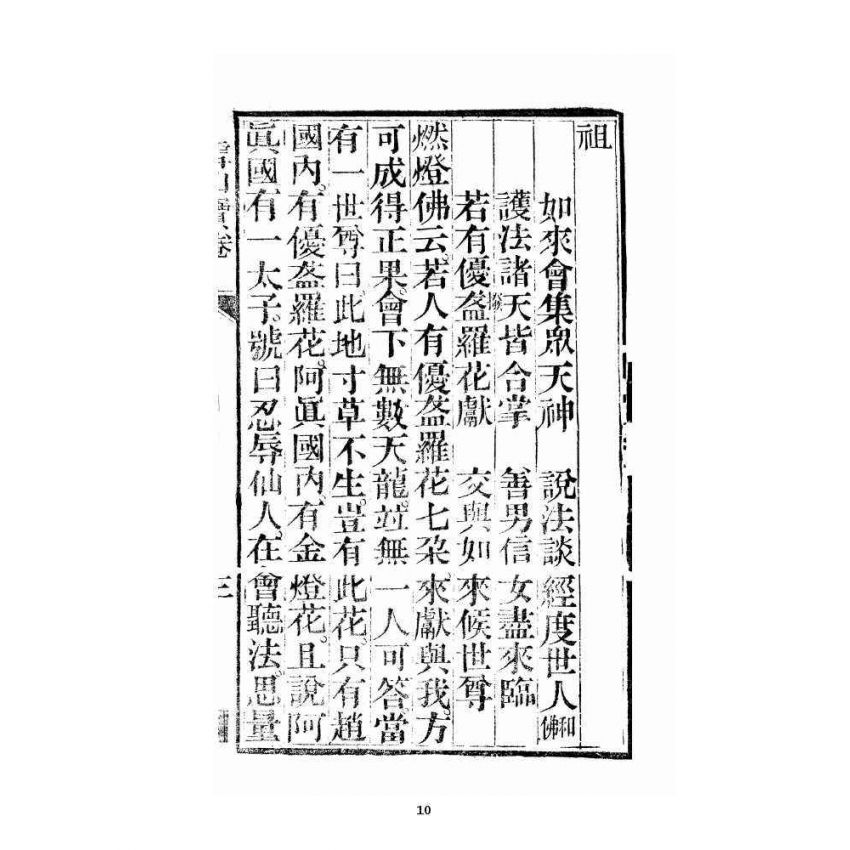 祖
如來會集眾天神　說法談經度世人和佛
護法諸天皆合掌　善男信女盡來臨
若有優盋羅花獻　交與如來候世尊
燃燈佛云。若人有優盋羅花七朶。來獻與我。方
可成得正果。會下無數天龍。竝無一人可答。當
有一世尊曰。此地寸草不生。豈有此花。只有趙
國內。有優盋羅花。阿眞國內。有金燈花。且說阿
眞國有一太子。號曰忍辱仙人。在會聽法。思量
雪山寶卷
三
10